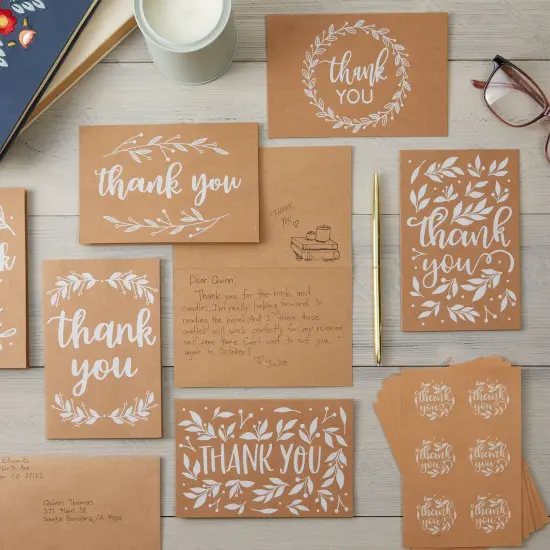 thank
YOU
thank you
THANK
YOU
thank
you
Dear Quinn,
Thank you for the book and
candles. I'm really looking forward to
reading the novel. And I think those
candles will work perfectly for my relaxing
self care time. Can't wait to see you
again in October!
Julie
thank
you
THANK YOU
thank
you
thank
you
thank
you
thank
you
thank
you
thank
you
Edwards
Ave
CO 27102
Quinn Thomas
371 Main St
Santa Barbara, CA